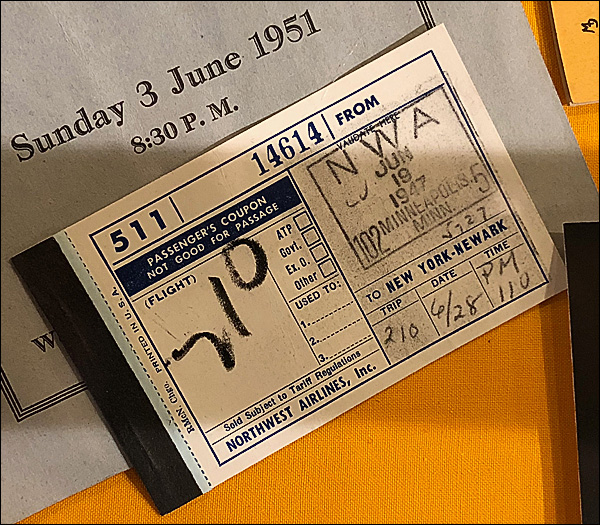 Sunday 3 June 1951
8:30 P. M.
W
511
14614
FROM
PASSENGER'S COUPON
NOT GOOD FOR PASSAGE
VALIDATE HERE
NWA
JUN
19
1947
102 MINNEAPOLIS 5
MINN
(FLIGHT)
210
ATP
Govt.
Ex. O.
Other
USED TO:
1.
2.
3.
TO NEW YORK-NEWARK
TRIP
DATE
TIME
210
6/28
PM
110
Sold Subject to Tariff Regulations
NORTHWEST AIRLINES, Inc.
RMCN, Chgo. PRINTED IN U.S.A.